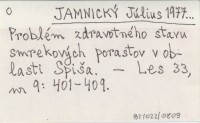 O JAMNICKÝ Július 1977...
Problém zdravotného stavu
smrekových porastov v ob-
lasti Spiša. — Les 33,
nr 9: 401-409.